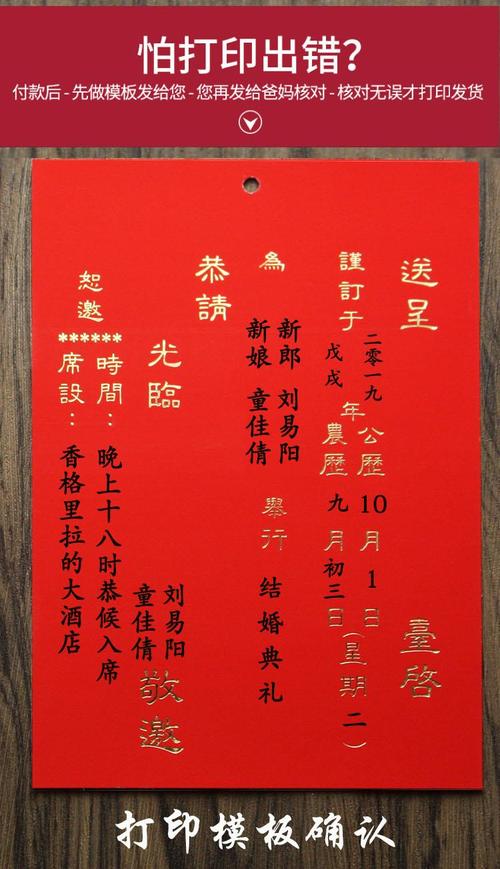 怕打印出错?
付款后-先做模板发给您-您再发给爸妈核对-核对无误才打印发货
送呈 臺啓
謹訂于
二零一九年公歷10月1日
戊戌年農歷九月初三日
(星期二)
為
新郎 刘易阳
新娘 童佳倩
舉行
结婚典礼
恭請
光臨
刘易阳
童佳倩
敬邀
恕邀
******
時間：晚上十八时恭候入席
席設：香格里拉的大酒店
打印模板确认